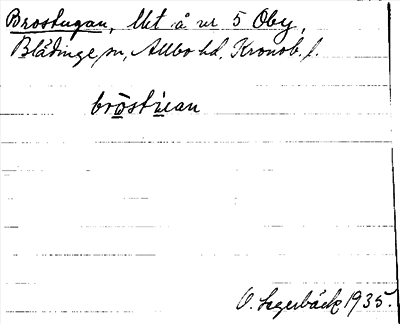 Brostugan, lht å nr 5 Oby,
Blädinge sn, Allbo hd, Kronob. l.
bröstuan
O. Lagerbäck 1935.